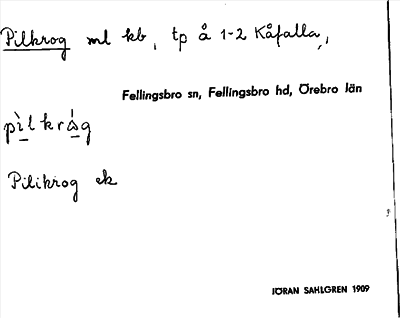 Pilkrog ml kb, tp å 1-2 Kåfalla,
Fellingsbro sn, Fellingsbro hd, Örebro län
pìlkråg
Pilikrog ek
JÖRAN SAHLGREN 1909